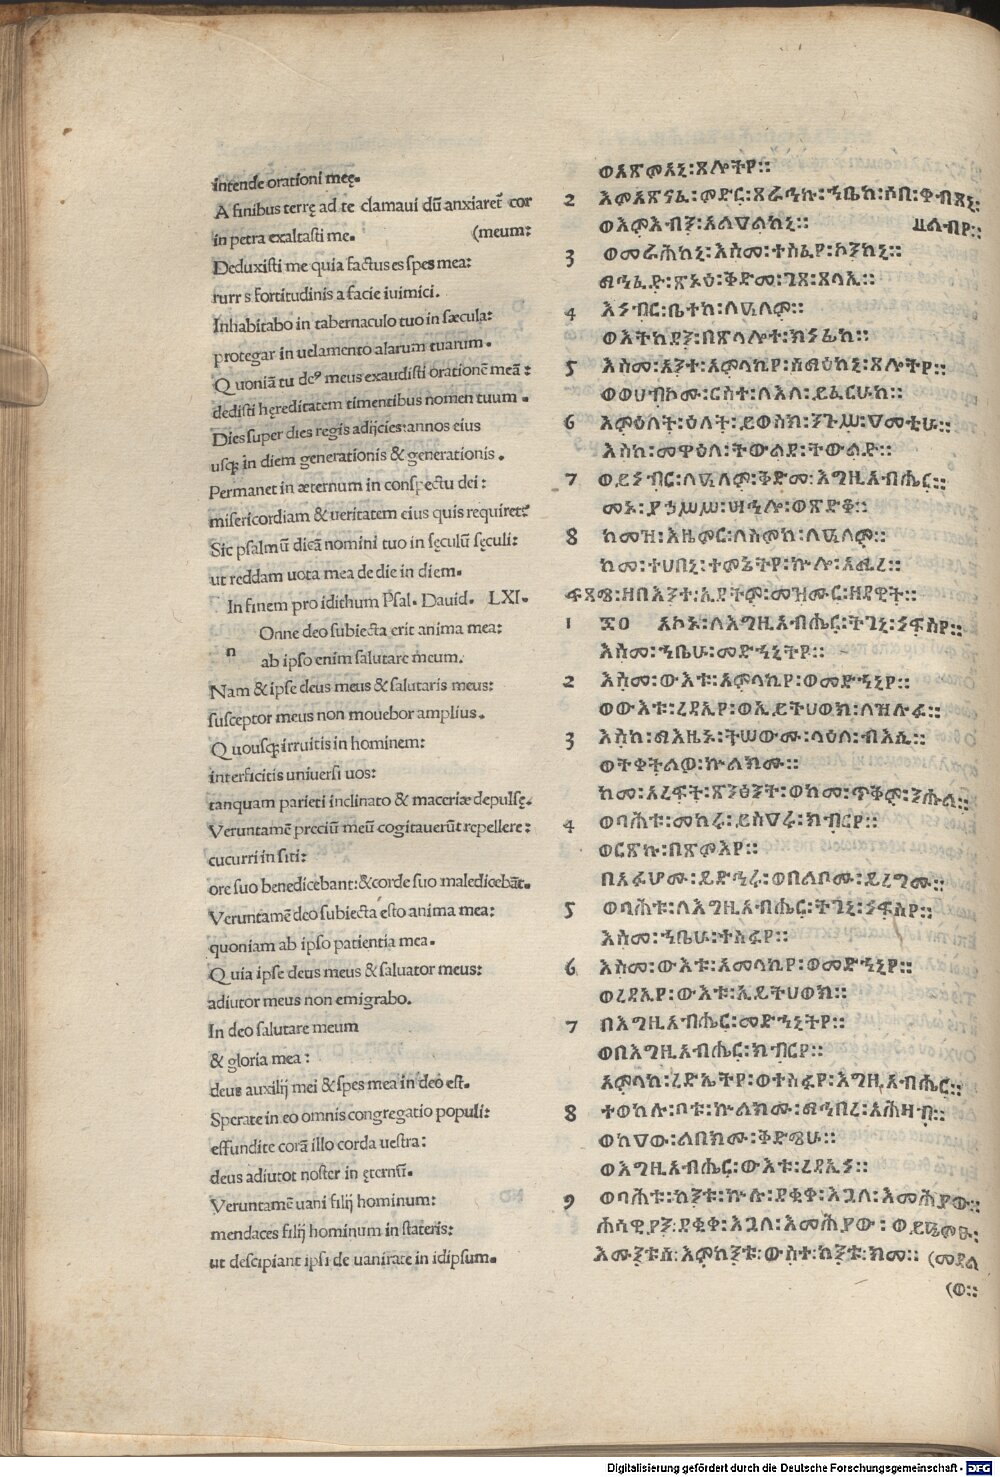 intende orationi meę.
A finibus terrę ad te clamaui dũ anxiaret̃ cor
in petra exaltasti me. (meum:
Deduxisti me quia factus es spes mea:
turr s fortitudinis a facie iuimici.
Inhabitabo in tabernaculo tuo in sæcula:
protegar in uelamento alarum tuarum.
Q uoniã tu deꝰ meus exaudisti orationẽ meã:
dedisti hęreditatem timentibus nomen tuum.
Dies super dies regis adijcies: annos eius
usqȝ in diem generationis & generationis.
Permanet in æternum in conspectu dei:
misericordiam & ueritatem eius quis requiret:
Sic psalmũ dicã nomini tuo in sęculũ sęculi:
ut reddam uota mea de die in diem.
In finem pro idithum Psal. Dauid. LXI.
n Onne deo subiecta erit anima mea:
ab ipso enim salutare meum.
Nam & ipse deus meus & salutaris meus:
susceptor meus non mouebor amplius.
Q uousqȝ irruitis in hominem:
interficitis uniuersi uos:
tanquam parieti inclinato & maceriæ depulsę.
Veruntamẽ preciũ meũ cogitauerũt repellere:
cucurri in siti:
ore suo benedicebant: & corde suo maledicebãt.
Veruntamẽ deo subiecta esto anima mea:
quoniam ab ipso patientia mea.
Q uia ipse deus meus & saluator meus:
adiutor meus non emigrabo.
In deo salutare meum
& gloria mea:
deus auxilij mei & spes mea in deo est.
Sperate in eo omnis congregatio populi:
effundite corã illo corda uestra:
deus adiutor noster in ęternũ.
Veruntamẽ uani filij hominum:
mendaces filij hominum in stateris:
ut descipiant ipsi de uanitate in idipsum.
ወአጽምአኒ፡ጸሎትየ።
2 እምአጽናፈ፡ምድር፡ጸራኅኩ፡ኀቤከ፡ሶበ፡ቀብጸኒ፡
ወእምእብን፡አልዐልከኒ፡ ልብየ።
3 ወመራሕከኒ፡እስመ፡ተስፋየ፡ኮንከኒ፡
ማኅፈድ፡ጽኑዕ፡ቅድመ፡ገጸ፡ጸላኢ።
4 እነብር፡ቤተከ፡ለዓለም።
ወእትከደን፡በጽላሎተ፡ክነፊከ።
5 እስመ፡አንተ፡አምላኪየ፡ሰማዕከኒ፡ጸሎትየ።
ወወሀብኮሙ፡ርስተ፡ለእለ፡ይፈርሁከ።
6 እምዕለት፡ዕለት፡ይወስክ፡ንጉሥ፡ዓመቲሁ።
እስከ፡መዋዕለ፡ትውልደ፡ትውልድ።
7 ወይነብር፡ለዓለም፡ቅድመ፡እግዚአብሔር።
መኑ፡የኃሥሥ፡ሣህሎ፡ወጽድቆ።
8 ከመዝ፡እዜምር፡ለስምከ፡ለዓለም።
ከመ፡ተሀበኒ፡ተምኔትየ፡ኵሎ፡አሚረ።
ዘበእንተ፡ኢዶቶም፡መዝሙር፡ዘዳዊት።
1 አኮኑ፡ለእግዚአብሔር፡ትገኒ፡ነፍስየ።
እስመ፡ኀቤሁ፡መድኀኒትየ።
2 እስመ፡ውእቱ፡አምላኪየ፡ወመድኀኒየ።
ወውእቱ፡ረዳኢየ፡ወኢይትሀወክ፡ለዝሉፉ።
3 እስከ፡ማእዜኑ፡ትሠውሙ፡ላዕለ፡ብእሲ።
ወትቀትልዎ፡ኵልክሙ።
ከመ፡አረፍት፡ጽንዕንት፡ወከመ፡ጥቅም፡ንሕል።
4 ወባሕቱ፡መከሩ፡ይስዐሩ፡ክብርየ።
ወርጽኩ፡በጽምእየ።
በአፉሆሙ፡ይድኅሩ፡ወበልቦሙ፡ይረግሙ።
5 ወባሕቱ፡ለእግዚአብሔር፡ትገኒ፡ነፍስየ።
እስመ፡ኀቤሁ፡ተስፋየ።
6 እስመ፡ውእቱ፡አመላኪየ፡ወመድኀኒየ።
ወረዳኢየ፡ውእቱ፡ኢይትሀወክ።
7 በእግዚአብሔር፡መድኀኒትየ።
ወበእግዚአብሔር፡ክብርየ።
አምላከ፡ረድኤትየ፡ወተስፋየ፡እግዚአብሔር።
8 ተወከሉ፡ቦቱ፡ኵልክሙ፡ማኅበረ፡አሕዛብ።
ወከዐው፡ልበክሙ፡ቅድሜሁ።
ወእግዚአብሔር፡ውእቱ፡ረዳኢነ።
9 ወባሕቱ፡ከንቱ፡ኵሉ፡ደቂቀ፡እጓለ፡እመሕያው።
ሐሳዊያን፡ደቂቀ፡እጓለ፡እመሕያው፡ወይዔምፁ፡
እሙንቱሰ፡እምከንቱ፡ውስተ፡ከንቱ፡ክመ። (መዳል
(ወ።
Digitalisierung gefördert durch die Deutsche Forschungsgemeinschaft - DFG